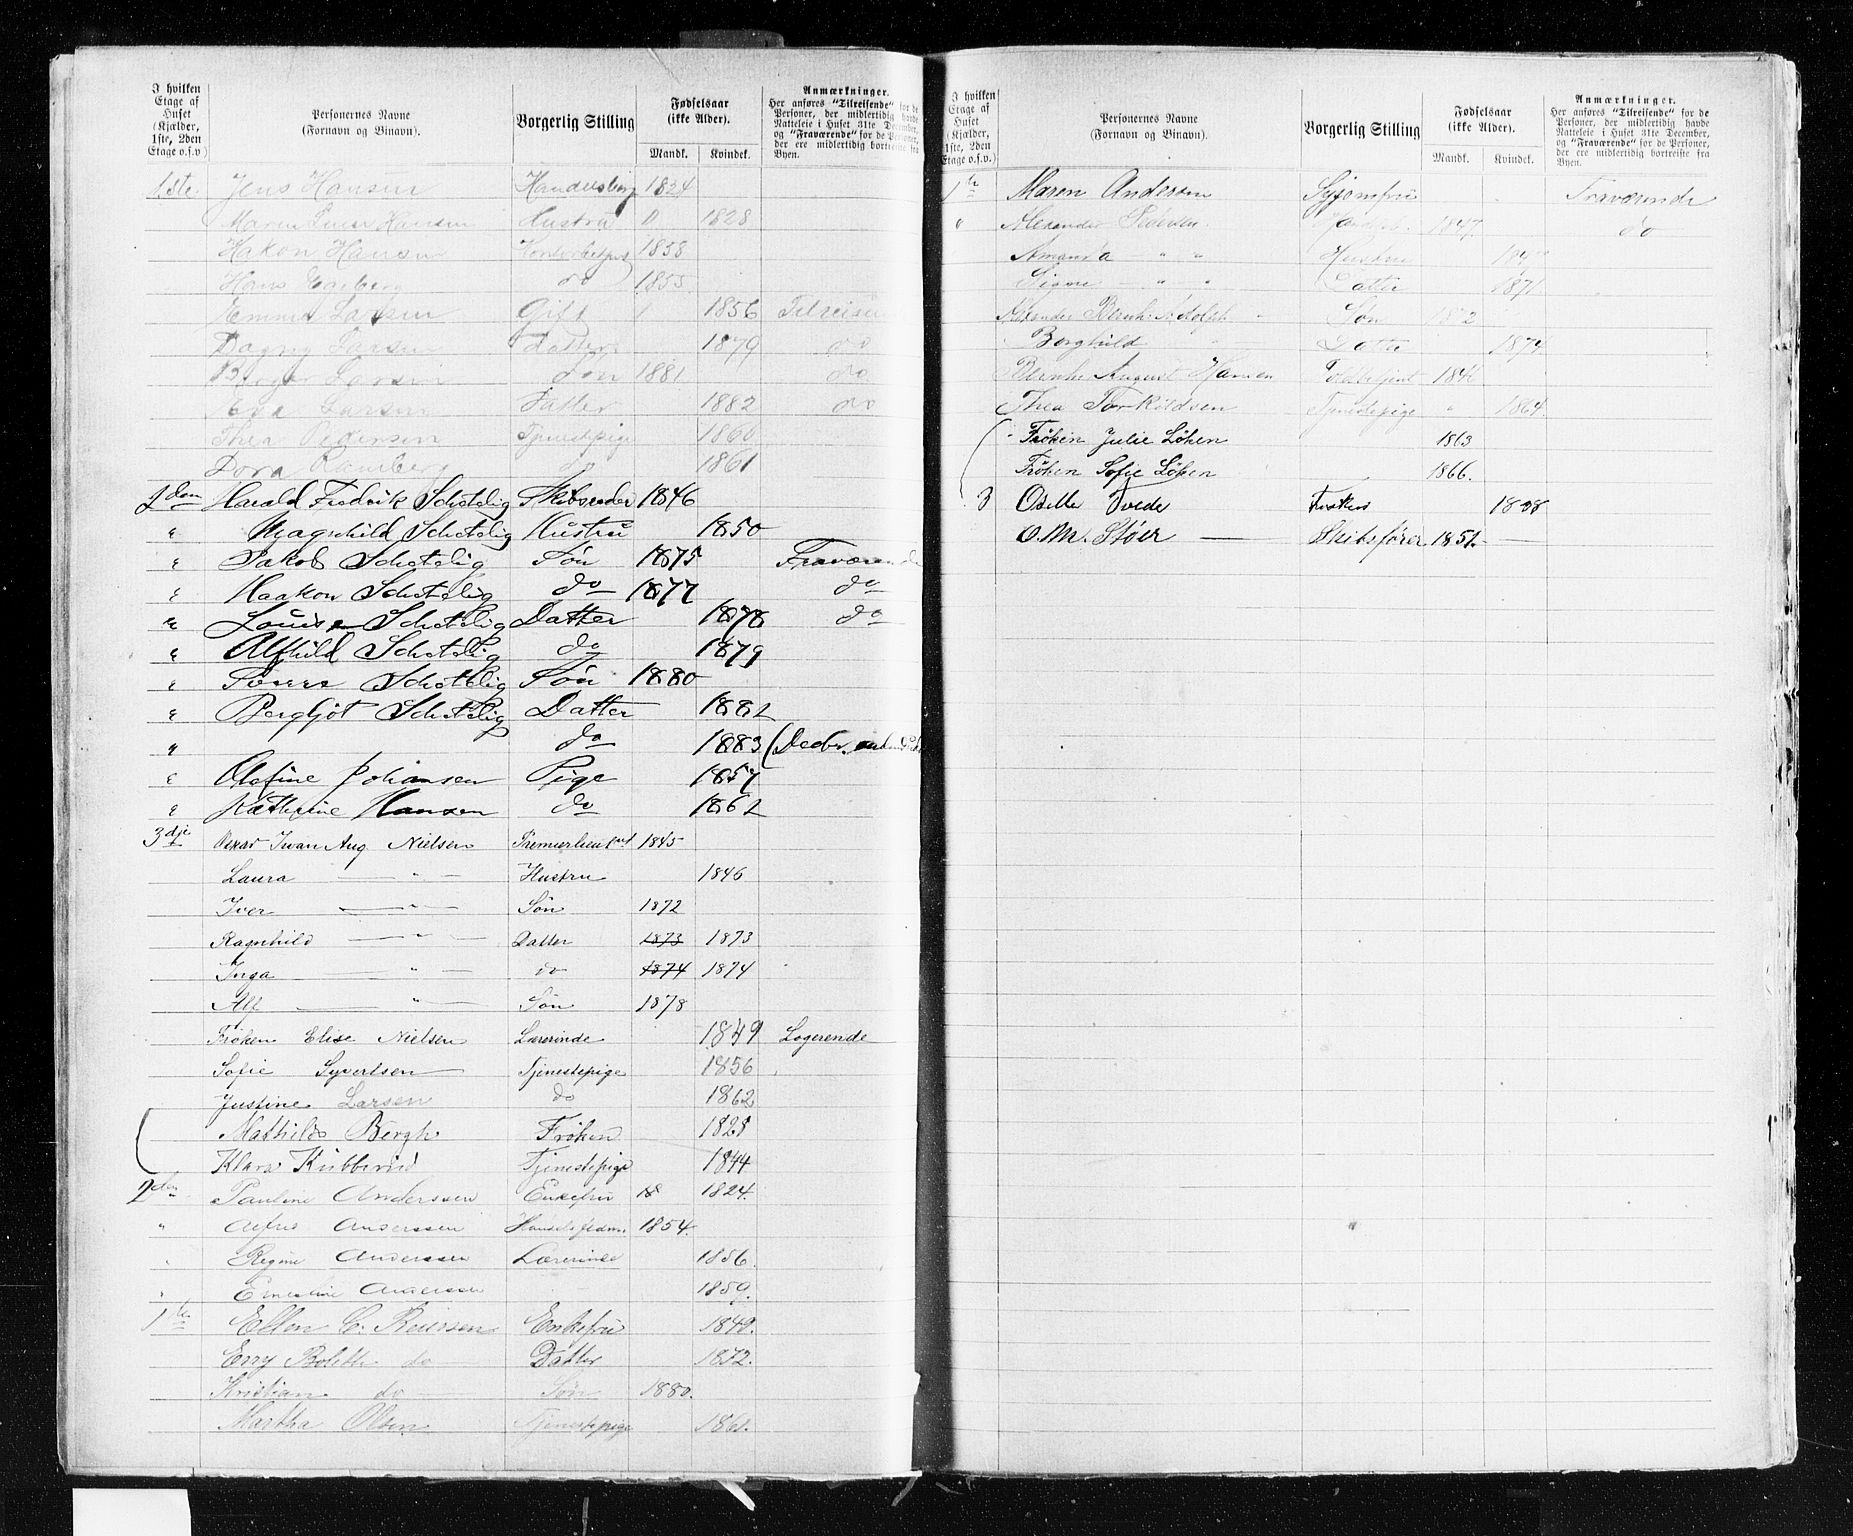 I hvilken Etage af Huset (Kjælder, 1ste, 2den Etage o.s.v.)
Personernes Navne (Fornavn og Binavn).
Borgerlig Stilling
Fødselsaar (ikke Alder).
Mandk. Kvindek.
Anmærkninger.
Her anføres "Tilreisende" for de Personer, der midlertidig havde Natteleie i Huset 31te December, og "Fraværende" for de Personer, der ere midlertidig bortreiste fra Byen.
1ste Jens Hansen Handelsbg 1824
Maren Hansen Hustru " 1828
Hakon Hansen 1858
Hans do 1855
Emma Larsen Gift " 1856 Tilreisende
Dagny Larsen Datter 1879 do
Birger Larsen Søn 1881 do
Larsen Datter 1882 do
Thea Pedersen Tjenestepige 1860
Dora Ramberg do 1861
2den Harald Fredrik Schetelig Skibsreder 1846
" Magnhild Schetelig Hustru 1850
" Jakob Schetelig Søn 1875 Fraværende
" Haakon Schetelig do 1877 do
" Louise Schetelig Datter 1878 do
" Alfhild Schetelig do 1879
" Sverre Schetelig Søn 1880
" Bergljot Schetelig Datter 1882
" do 1883 (Decbr.
" Olefine Johansen Pige 1857
" Kathrine Hansen do 1862
3dje Oskar Iwan Aug Nielsen Premierlieutnant 1845
Laura — " — Hustru 1846
Iver — " — Søn 1872
Ragnhild — " — Datter 1873 1873
Inga — " — do 1874 1874
Alf — " — Søn 1878
Frøken Elise Nielsen Lærerinde 1849 Logerende
Sofie Syvertsen Tjenestepige 1856
Justine Larsen do 1862
Mathilde Bergh Frøken 1828
Klara Kubberud Tjenestepige 1844
2den Pauline Anderssen Enkefru 18 1824.
" Anderssen Handelsfuldm. 1854.
" Regine Anderssen Lærerinde 1856.
" Ernestine Anderssen 1859.
1ste Ellen C. Reiersen Enkefru 1849.
Boleth do Datter 1872.
Kristian do Søn 1880.
Martha Olsen Tjenestepige 1861.
I hvilken Etage af Huset (Kjælder, 1ste, 2den Etage o.s.v.)
Personernes Navne (Fornavn og Binavn).
Borgerlig Stilling
Fødselsaar (ikke Alder).
Mandk. Kvindek.
Anmærkninger.
Her anføres "Tilreisende" for de Personer, der midlertidig havde Natteleie i Huset 31te December, og "Fraværende" for de Personer, der ere midlertidig bortreiste fra Byen.
1ste Maren Andersen Syjomfru Fraværende
" Alexander 1847. do
Amanda — " " Hustru
Signe — " " Datter 1871
Alexander Bernh. Adolph " Søn 1872
Borghild " Datter 1874
Bernh. August Hansen Toldbetjent
Thea Torkildsen Tjenestepige " 1864.
Frøken Julie Løken 1863
Frøken Sofie Løken 1866.
3 Tvede
O. M. Støer — Skibsfører 1851. —